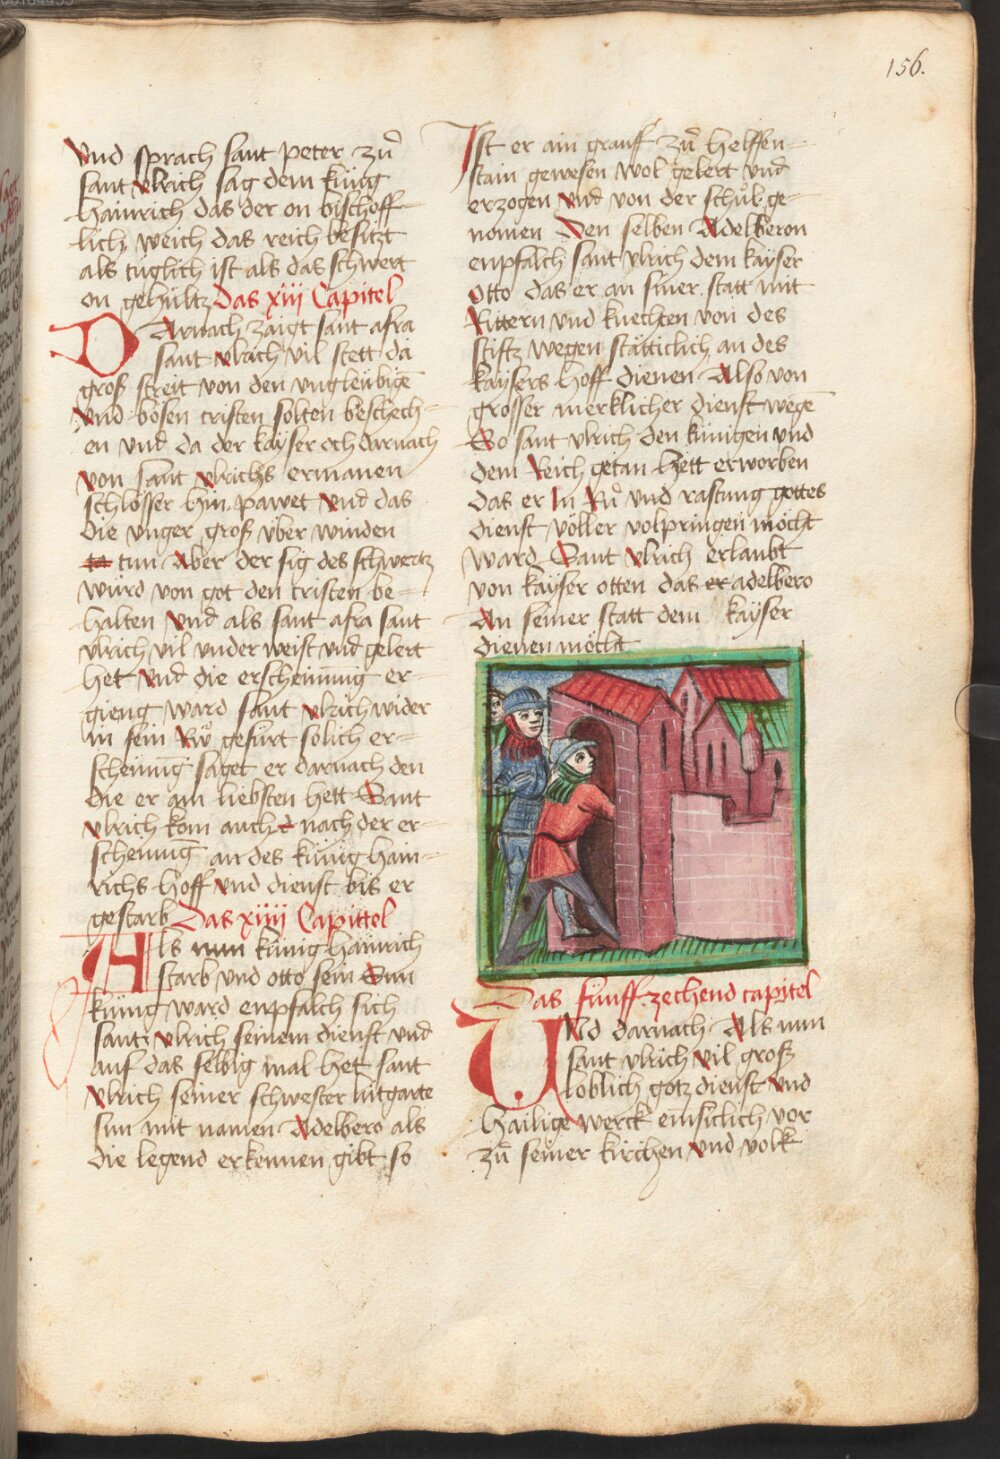 156.
Vnd sprach sant peter zů
sant vlrich sag dem küng
hainrich das der on bischoff
lich weich das reich besitzt
als tuglich ist als das schwert
on gehültz Das xiij Capitel
Darnach zaigt sant afra
sant vlrich vil stett da
groß streit von den vngleubigē
vnd bösen cristen solten beschech-
en vnd da der kayser och darnach
von sant vlrichs ermanen
schlösser hin pawet vnd das
die vnger groß vber winden
ta tun Aber der sig des schwertz
würd von got den cristen be-
halten vnd als sant afra sant
vlrich vil vnder weist vnd gelert
het vnd die erscheinung er-
gieng ward sant vlrich wider
in sein Rů gefürt solich er-
scheinung saget er darnach den
die er am liebsten hett Sant
vlrich kom auch nach der er-
scheinung an des künig hain-
richs hoff vnd dienst bis er
gestarb Das xiiij Capittel
Als nun künig hainrich
starb vnd otto sein Sun
küng ward enpfalch sich
sant vlrich seinem dienst vnd
auf das selbig mal het sant
vlrich seiner schwester lutgarte
sun mit namen Adelbero als
die legend erkennen gibt so
Ist er ain grauff zů helffen-
stain gewesen wol gelert vnd
erzogen vnd von der schůl ge-
nomen Den selben Adelberon
enpfalch sant vlrich dem kayser
Otto das er an siner statt mit
Rittern vnd knechten von des
stiftz wegen stätticlich an des
kaysers hoff dienen Also von
grosser mercklicher dienst wegē
So sant vlrich den künigen vnd
dem Reich getan hett erworben
das er In Rů vnd rastung gottes
dienst völler volpringen möcht
ward Sant vlrich erlaubt
von kayser otten das er adelbero
An seiner statt dem kayser
dienen möcht
Das fünff zechend capitel
Und darnach Als nun
sant vlrich vil groß
loblich gotz dienst vnd
hailige werck einsiclich vor
zů seiner kirchen vnd volk